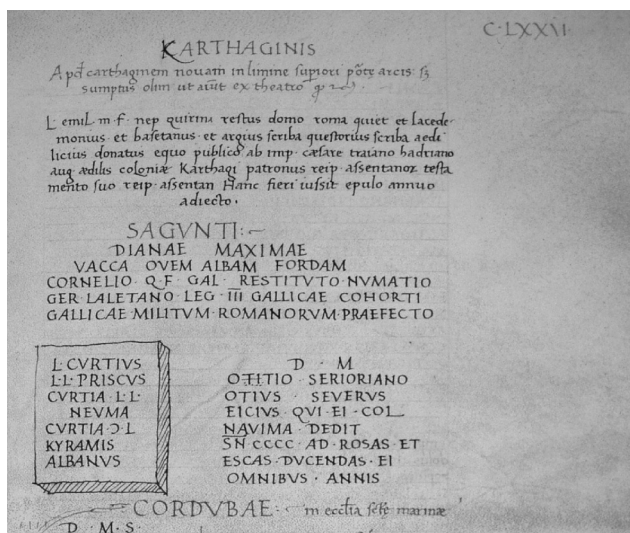 C·LXXVI·
KARTHAGINIS
Apd carthaginem novam in limine supiori pōte arcis: sȝ
sumptus olim ut aiūt ex theatro
L· emil· m· f· nep quirina restus domo roma quiet et lacede
monius· et basetanus· et argius scriba questorius scriba aedi
licius donatus equo publico ab imp· cæsare traiano hadriano
aug ædilis coloniæ Karthagi patronus reip· assentanoz testa
mento suo reip· assentan Hanc fieri iussit epulo annuo
adiecto·
SAGVNTI:~
DIANAE MAXIMAE
VACCA OVEM ALBAM FORDAM
CORNELIO· Q·F· GAL· RESTITVTO· NVMATIO
GER· LALETANO· LEG· III GALLICAE COHORTI
GALLICAE· MILITVM· ROMANORVM· PRAEFECTO
L· CVRTIVS
L·L·PRISCVS
CVRTIA·L·L·
NEVMA
CVRTIA·Ɔ·L
KYRAMIS
ALBANVS
D · M
OTITIO · SERIORIANO
OTIVS · SEVERUS
EICIVS· QVI· EI· COL
NAVIMA· DEDIT
SN· CCCC · AD· ROSAS· ET
ESCAS· DVCENDAS· EI
OMNIBVS · ANNIS
CORDVBAE· in ecclia marinæ
D · M · S ·